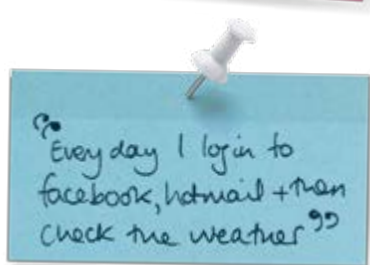 “Every day I login to
facebook, hotmail + then
check the weather”